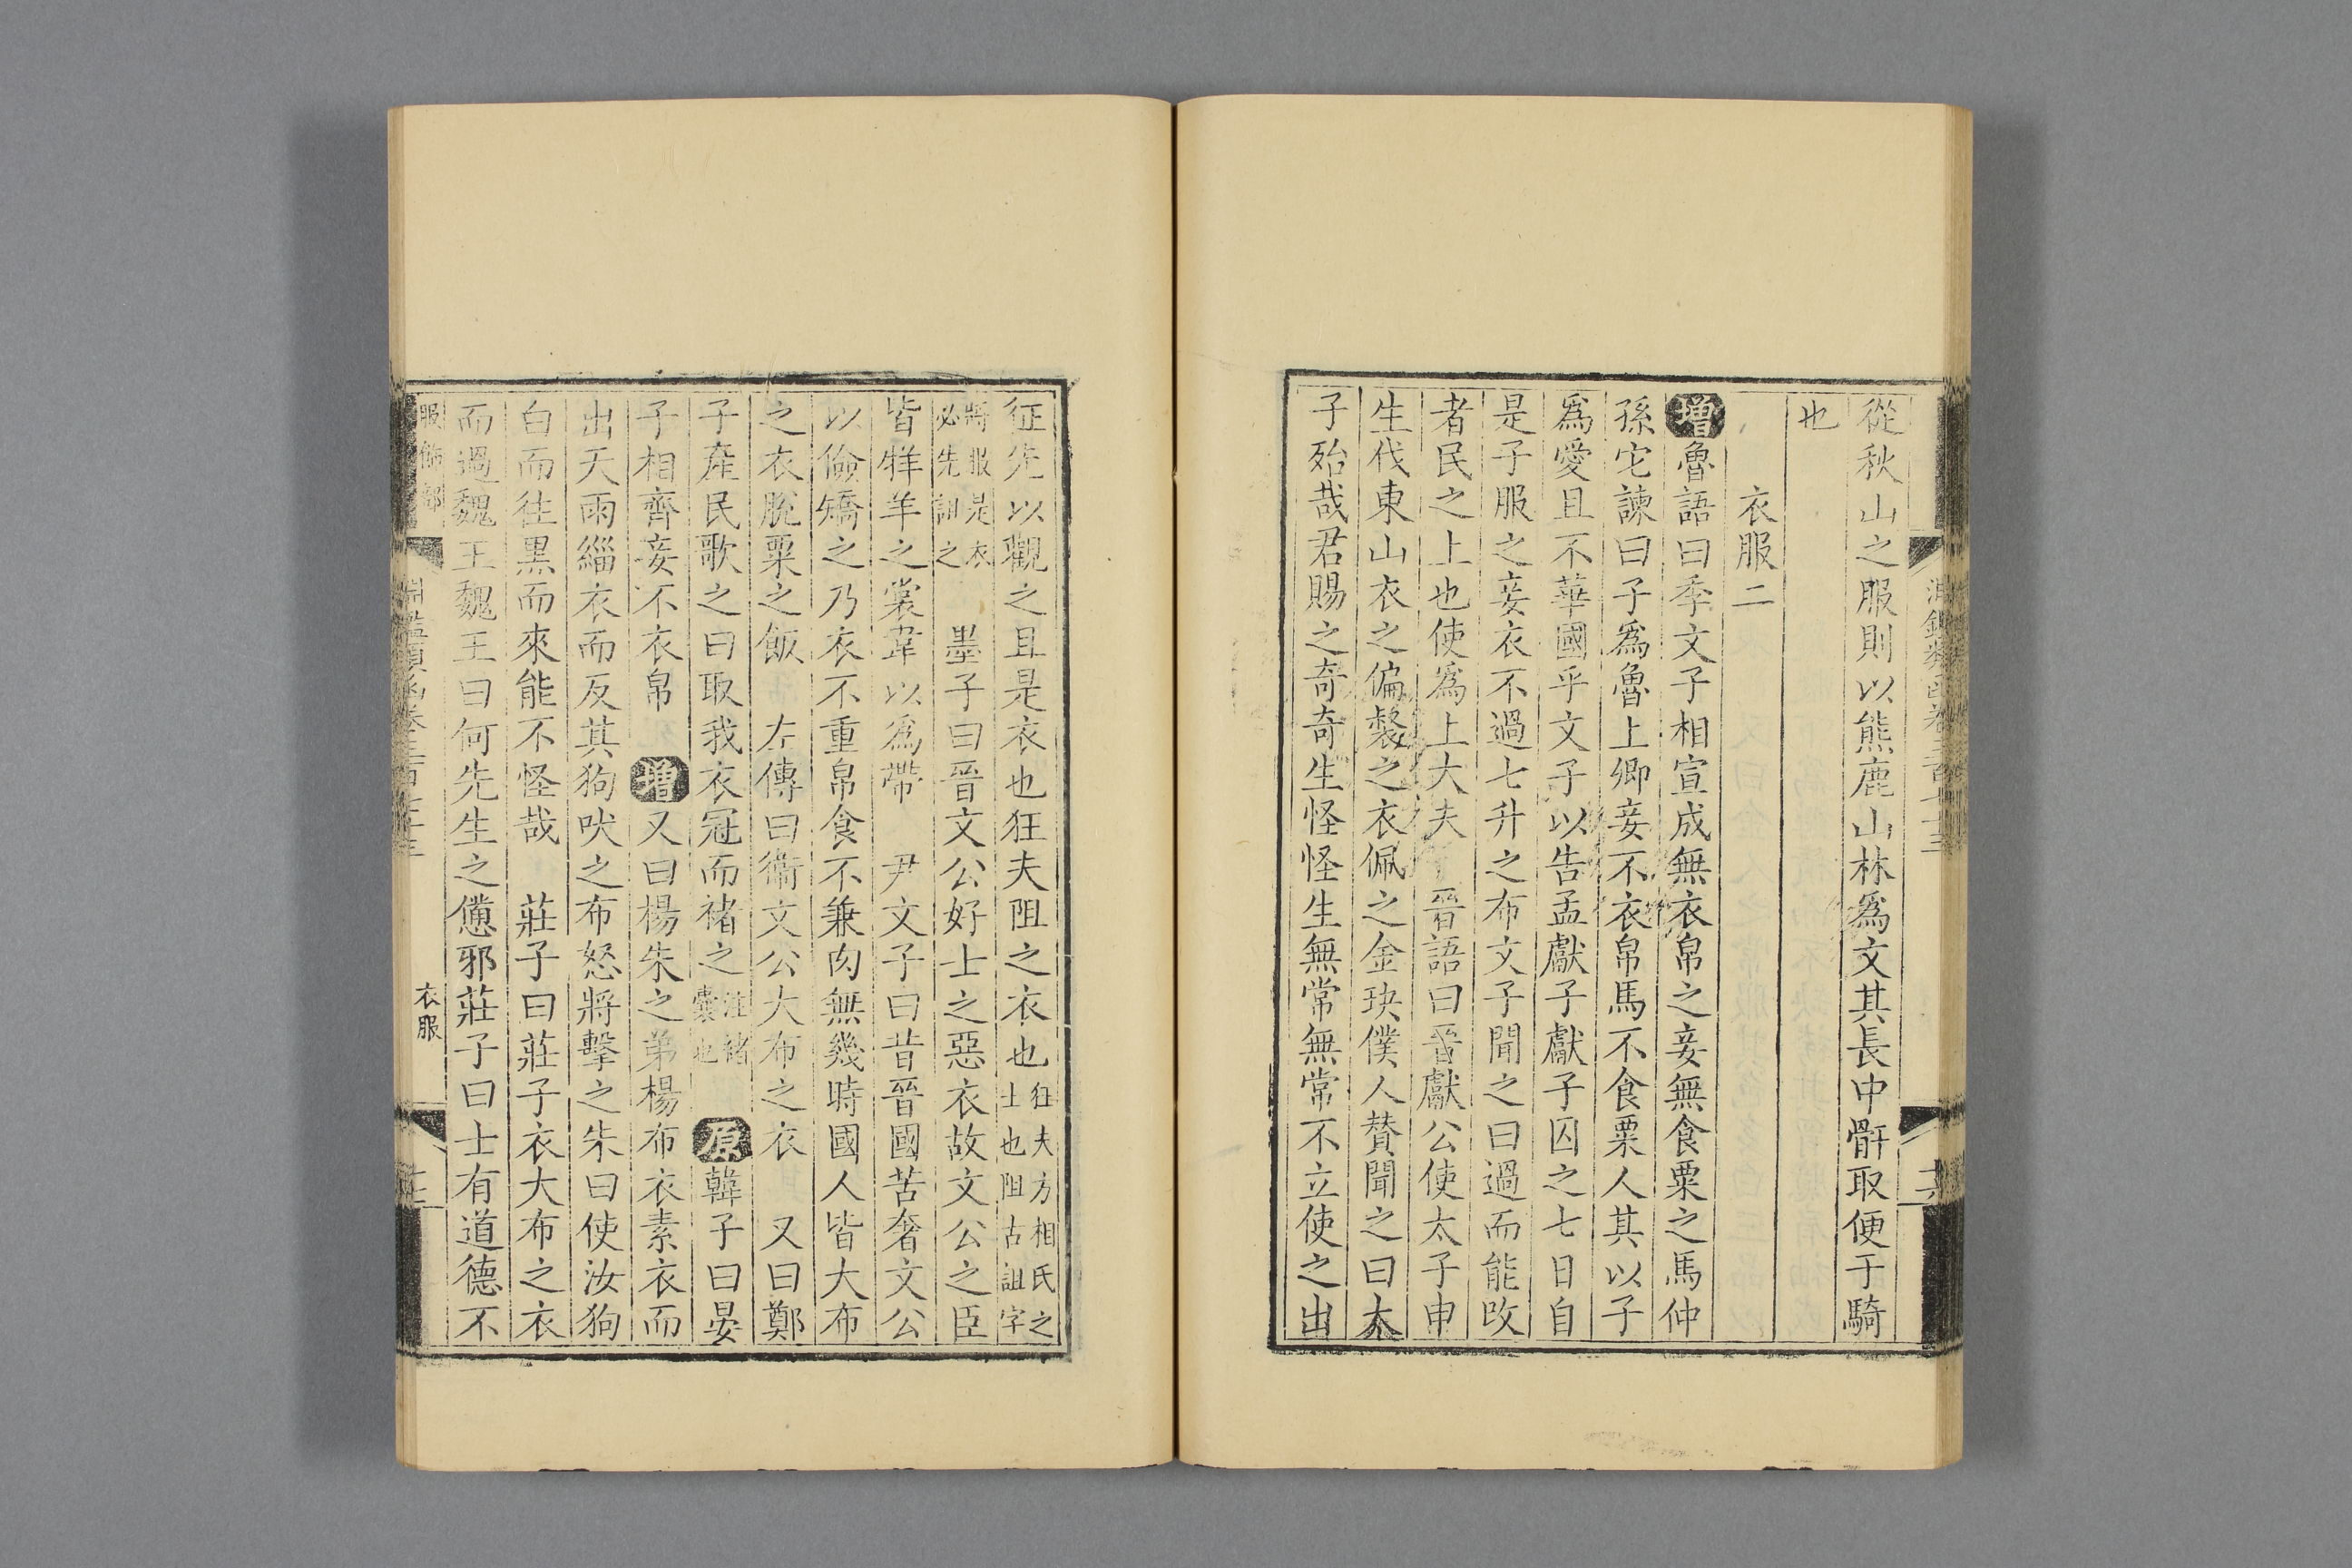 從秋山之服則以熊鹿山林爲文其長中骭取便于騎
也
衣服二
增魯語曰季文子相宣成無衣帛之妾無食粟之馬仲
孫它諫曰子爲魯上卿妾不衣帛馬不食粟人其以子
爲愛且不華國乎文子以告孟獻子獻子囚之七日自
是子服之妾衣不過七升之布文子聞之曰過而能改
者民之上也使爲上大夫 晉語曰晉獻公使太子申
生伐東山衣之偏褩之衣佩之金玦僕人贊聞之曰太
子殆哉君賜之奇奇生怪怪生無常無常不立使之出
征先以觀之且是衣也狂夫阻之衣也狂夫方相氏之士也阻古詛字
將服是衣必先詛之 墨子曰晉文公好士之惡衣故文公之臣
皆牂羊之裳韋以爲帶 尹文子曰昔晉國苦奢文公
以儉矯之乃衣不重帛食不兼肉無幾時國人皆大布
之衣脫粟之飯 左傳曰衞文公大布之衣 又曰鄭
子產民歌之曰取我衣冠而褚之注褚囊也 原韓子曰晏
子相齊妾不衣帛 增又曰楊朱之弟楊布衣素衣而
出天雨緇衣而反其狗吠之布怒將擊之朱曰使汝狗
白而往黑而來能不怪哉 莊子曰莊子衣大布之衣
而過魏王魏王曰何先生之憊邪莊子曰士有道德不
服飾部
衣服